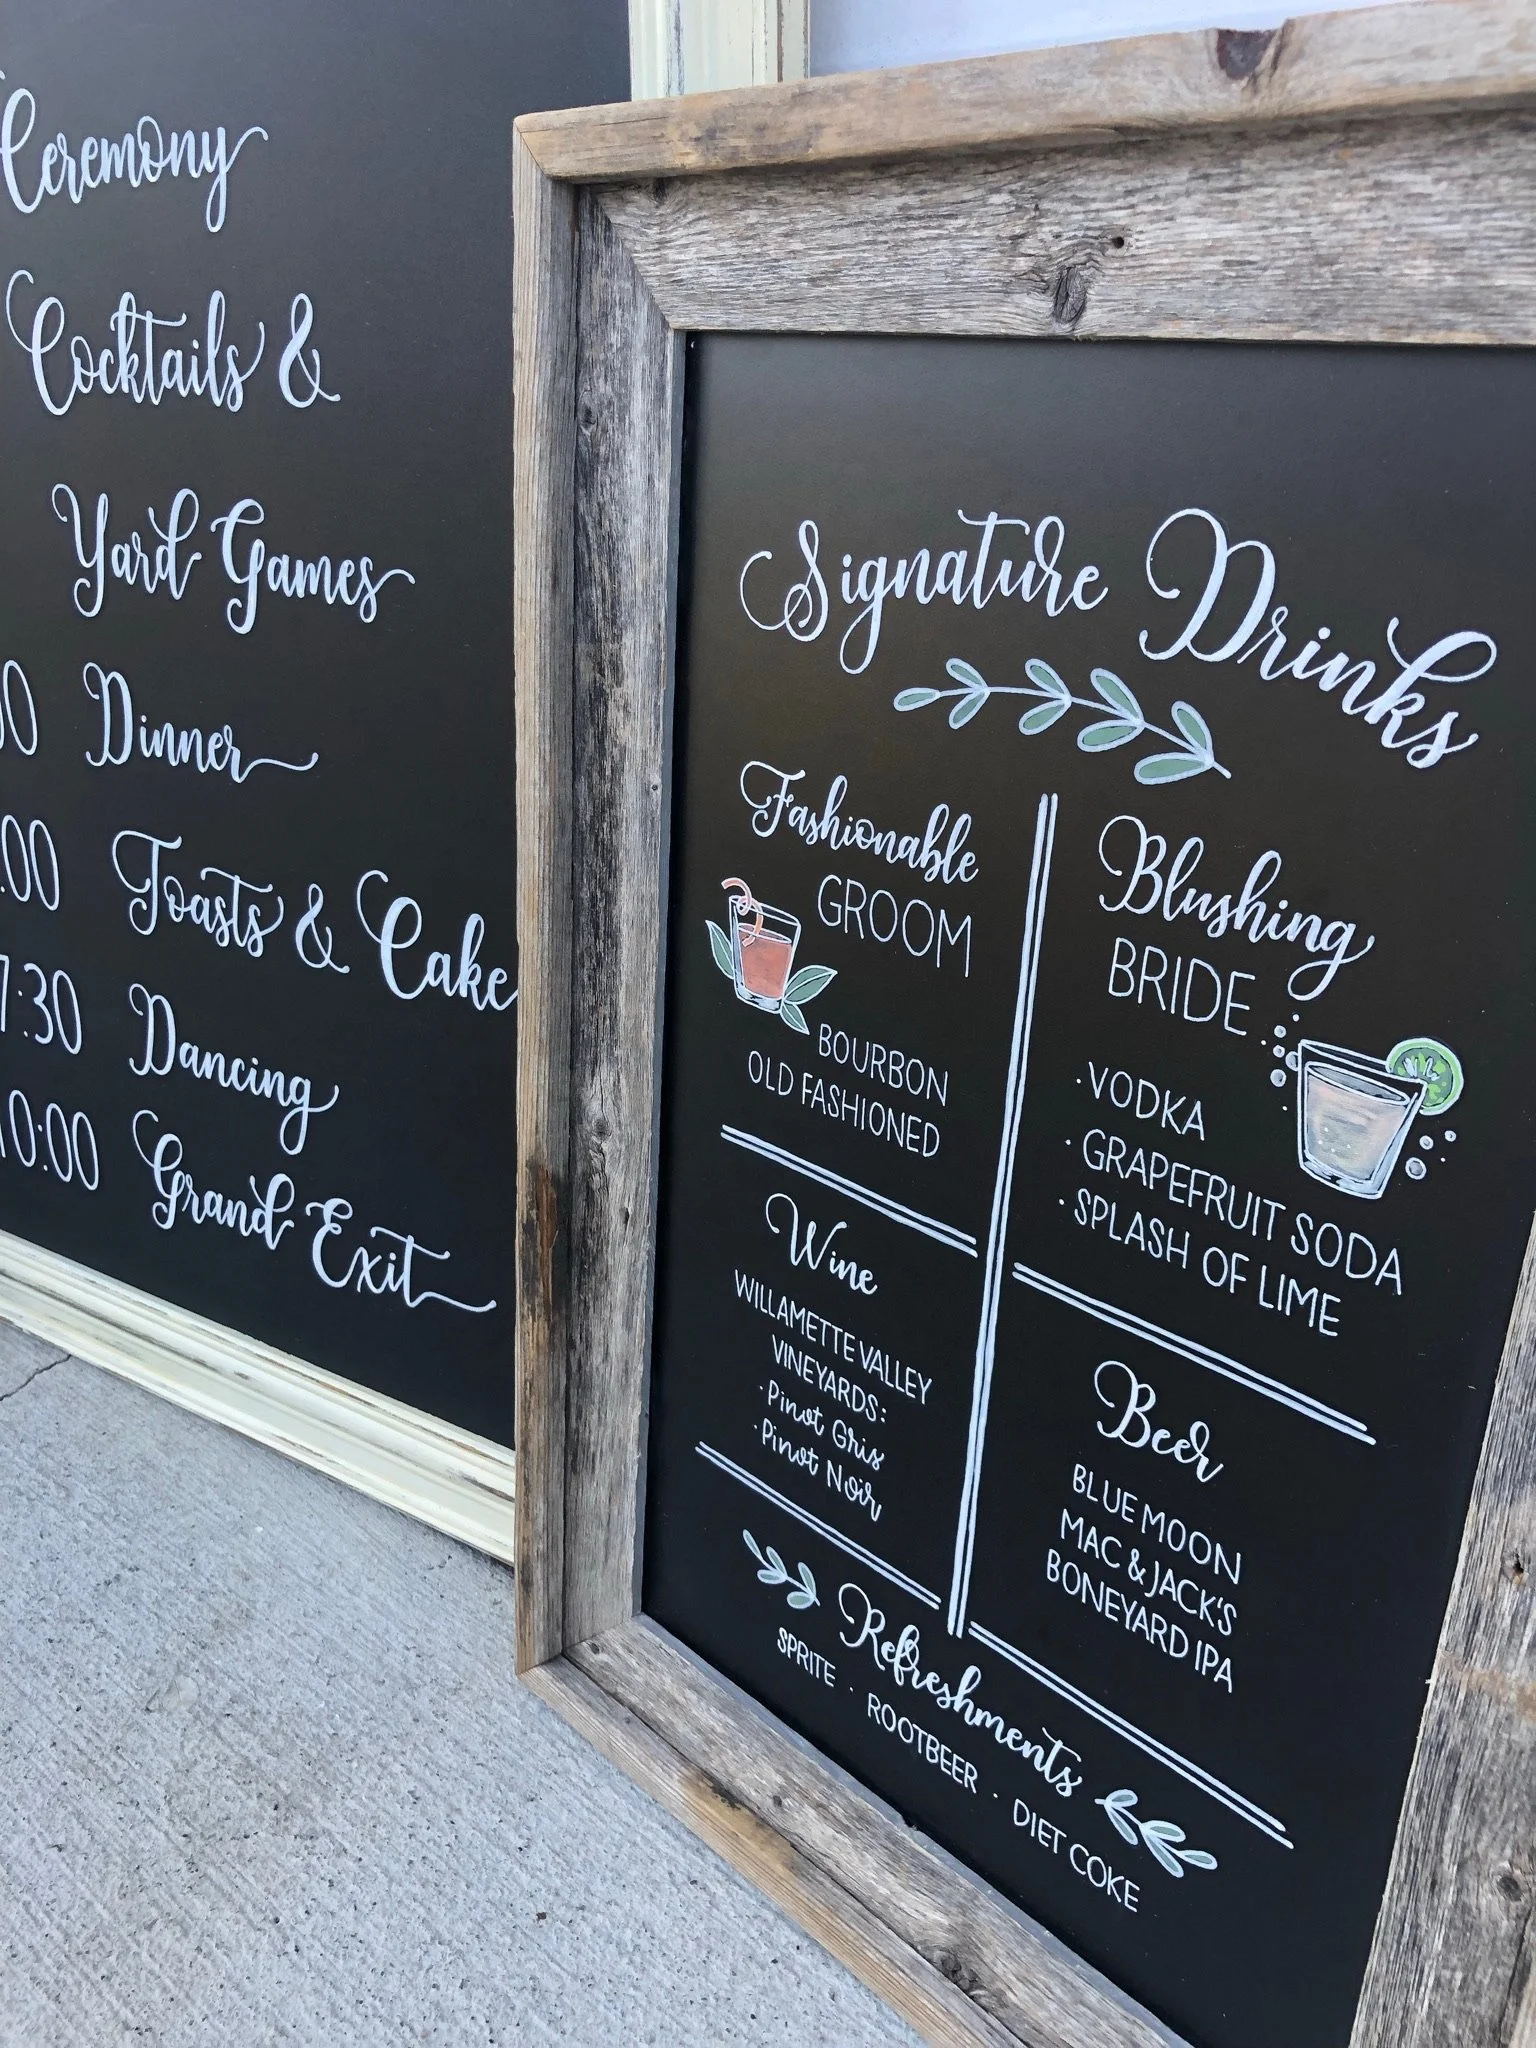 Ceremony
Cocktails &
Yard Games
Dinner
:00 Toasts & Cake
7:30 Dancing
10:00 Grand Exit
Signature Drinks
Fashionable
GROOM
BOURBON
OLD FASHIONED
Blushing
BRIDE
·VODKA
·GRAPEFRUIT SODA
·SPLASH OF LIME
Wine
WILLAMETTE VALLEY
VINEYARDS:
·Pinot Gris
·Pinot Noir
Beer
BLUE MOON
MAC & JACK'S
BONEYARD IPA
Refreshments
SPRITE · ROOTBEER · DIET COKE